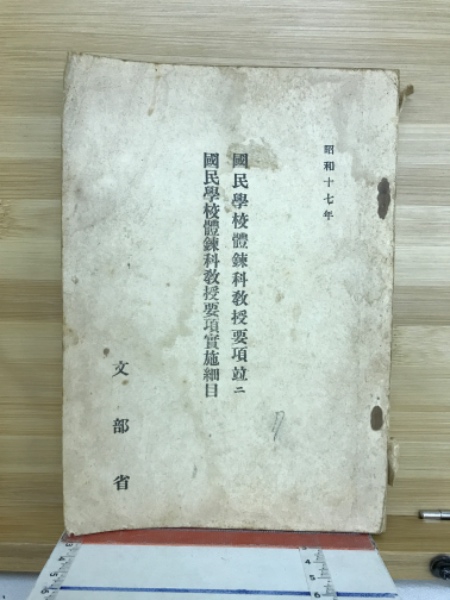 昭和十七年
國民學校體鍊科教授要項竝ニ
國民學校體鍊科教授要項實施細目
文部省